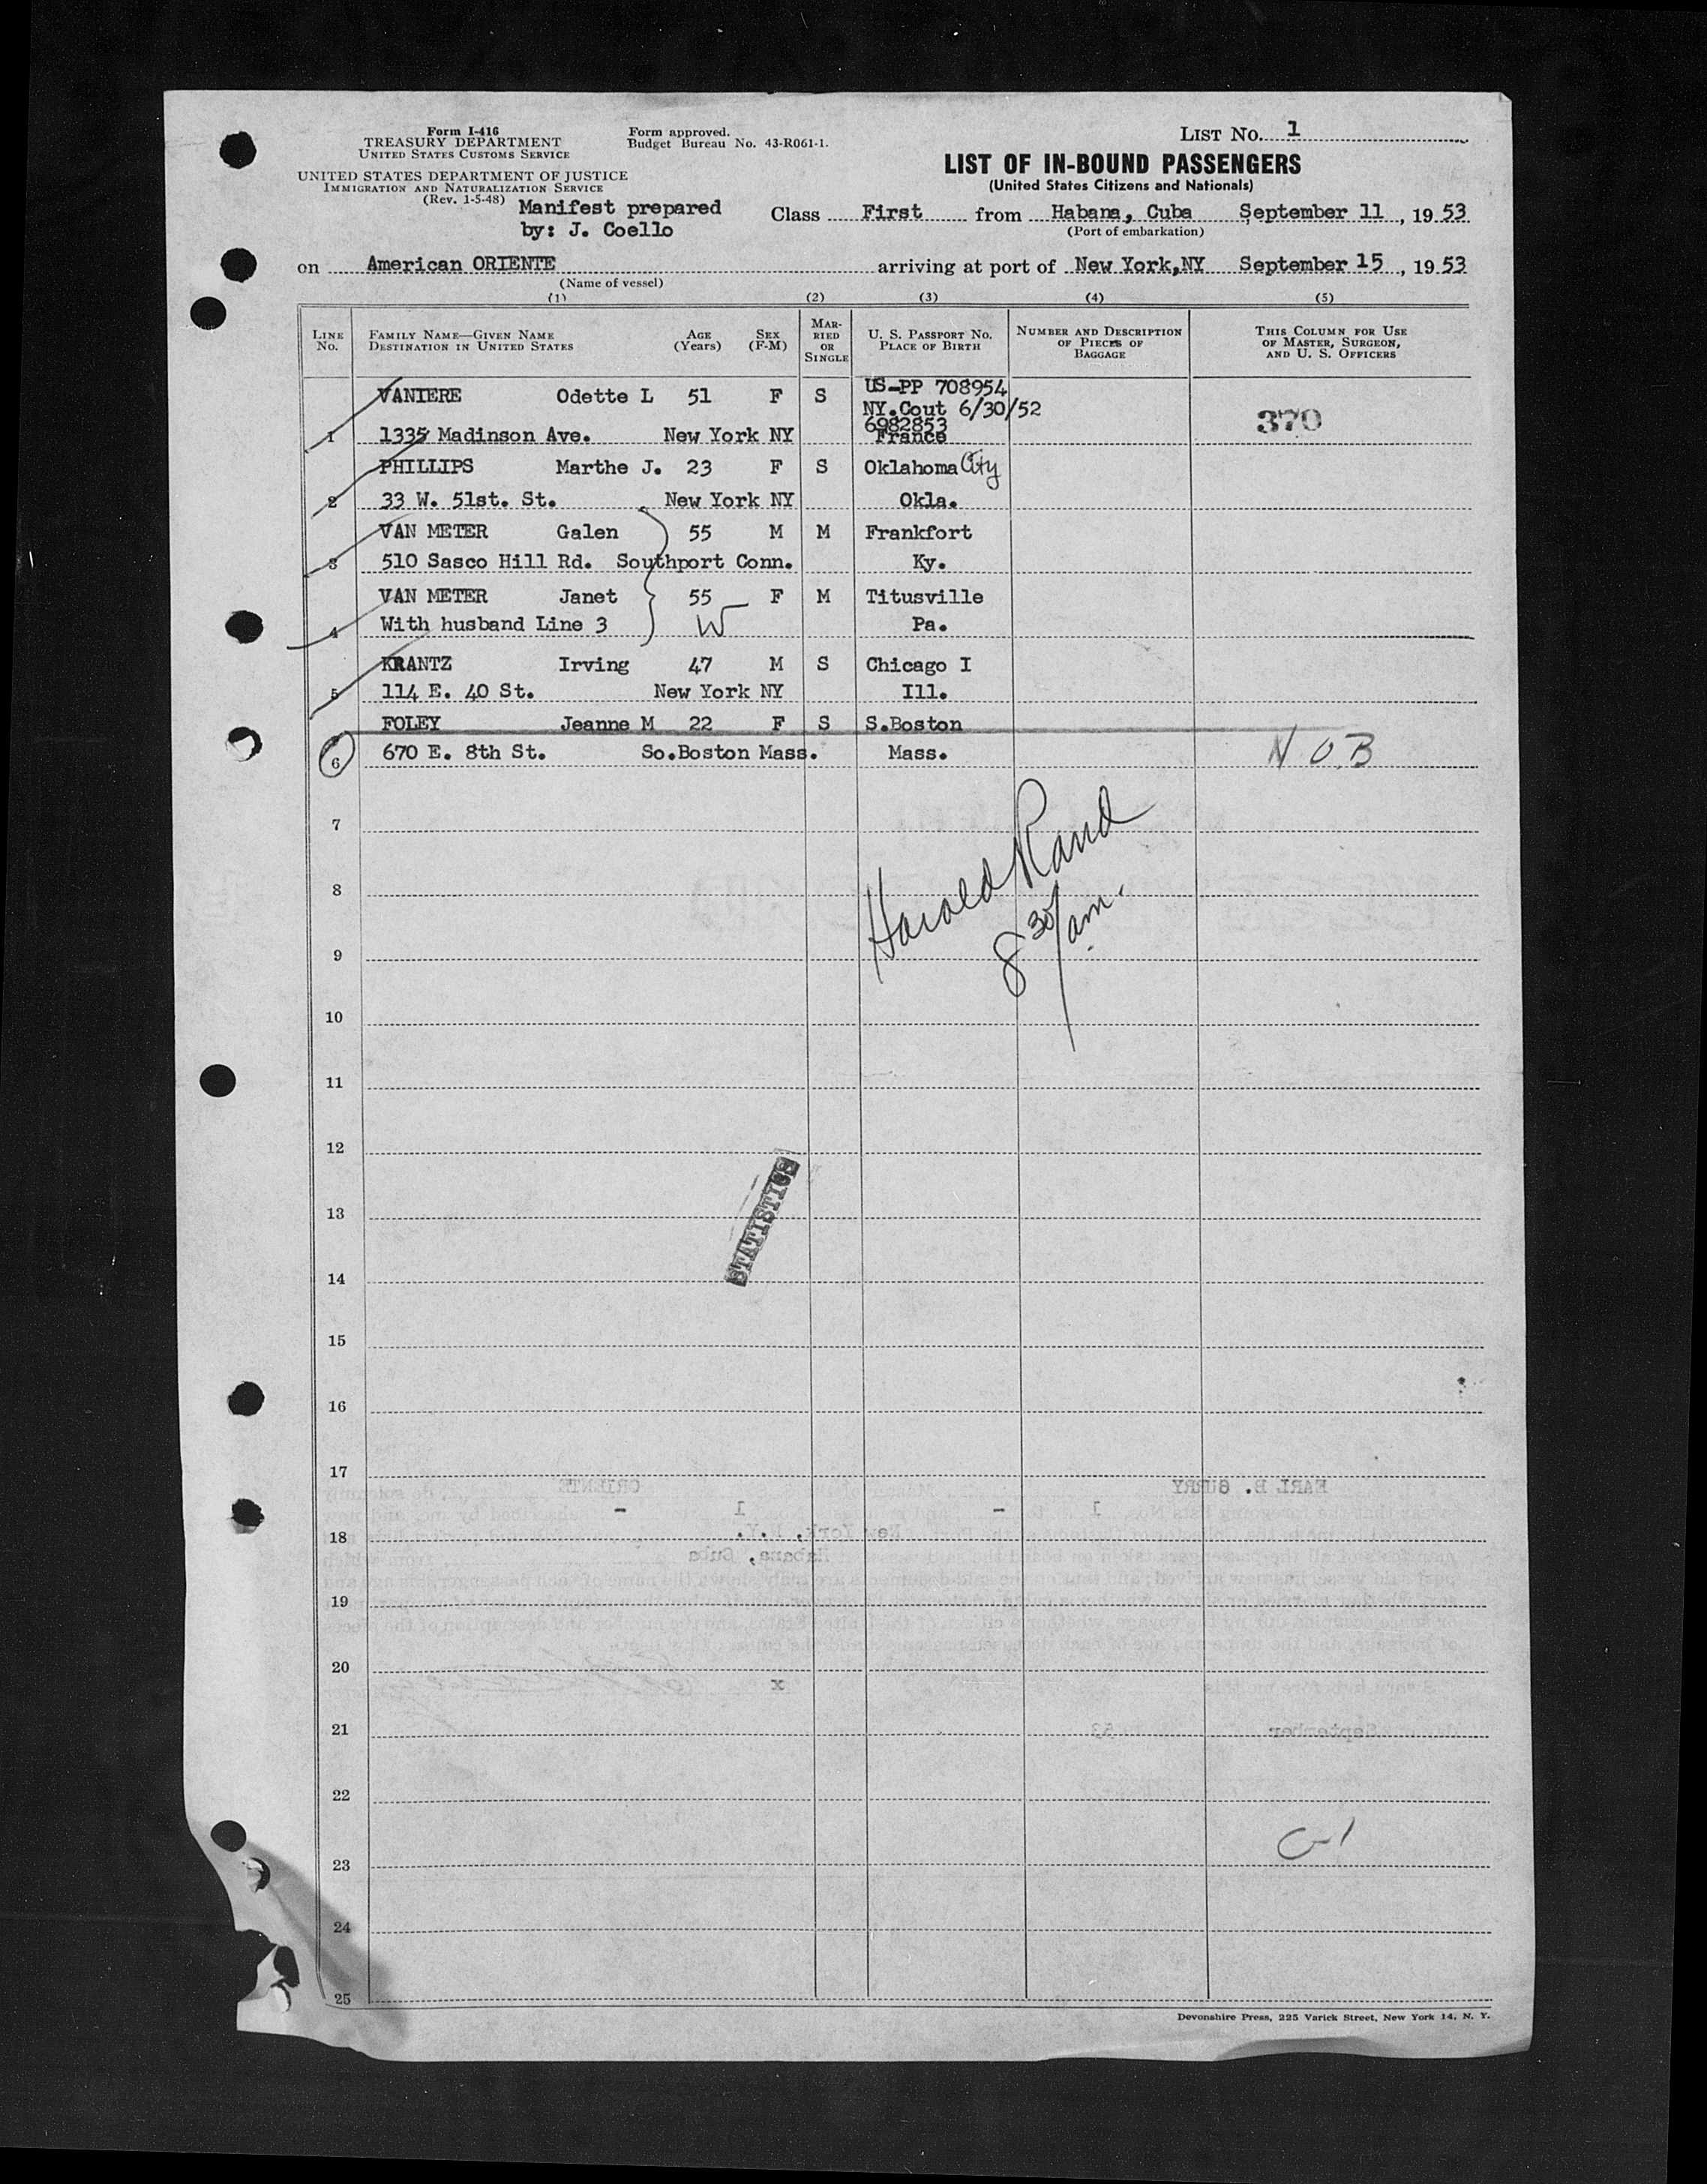 Form I-416
TREASURY DEPARTMENT
UNITED STATES CUSTOMS SERVICE
Form approved.
Budget Bureau No. 43-R061-1.
LIST NO. 1
UNITED STATES DEPARTMENT OF JUSTICE
IMMIGRATION AND NATURALIZATION SERVICE
(Rev. 1-5-48)
Manifest prepared
by: J. Coello
LIST OF IN-BOUND PASSENGERS
(United States Citizens and Nationals)
Class First from Habana, Cuba September 11, 19 53
(Port of embarkation)
on American ORIENTE arriving at port of New York,NY September 15, 19 53
(Name of vessel)
(1) (2) (3) (4) (5)
LINE NO. FAMILY NAME—GIVEN NAME DESTINATION IN UNITED STATES AGE (Years) SEX (F-M) MARRIED OR SINGLE U. S. PASSPORT NO. PLACE OF BIRTH NUMBER AND DESCRIPTION OF PIECES OF BAGGAGE THIS COLUMN FOR USE OF MASTER, SURGEON, AND U. S. OFFICERS
VANIERE Odette L 51 F S US-PP 708954
NY.Cout 6/30/52
6982853
370
1 1335 Madinson Ave. New York NY France
PHILLIPS Marthe J. 23 F S Oklahoma City
2 33 W. 51st. St. New York NY Okla.
VAN METER Galen 55 M M Frankfort
3 510 Sasco Hill Rd. Southport Conn. Ky.
VAN METER Janet 55 F M Titusville
4 With husband Line 3 W Pa.
KRANTZ Irving 47 M S Chicago I
5 114 E. 40 St. New York NY Ill.
FOLEY Jeanne M 22 F S S.Boston
6 670 E. 8th St. So.Boston Mass. Mass. N O.B
7
Harold Rand
8
8 30/am.
9
10
11
12
STATISTICS
13
14
15
16
17
EARL B. GURRY ORIENTE
1 - 1 -
18 New York, N.Y.
Habana, Cuba
19
20
x
21 September 53
22
23
24
25
Devonshire Press, 225 Varick Street, New York 14, N. Y.